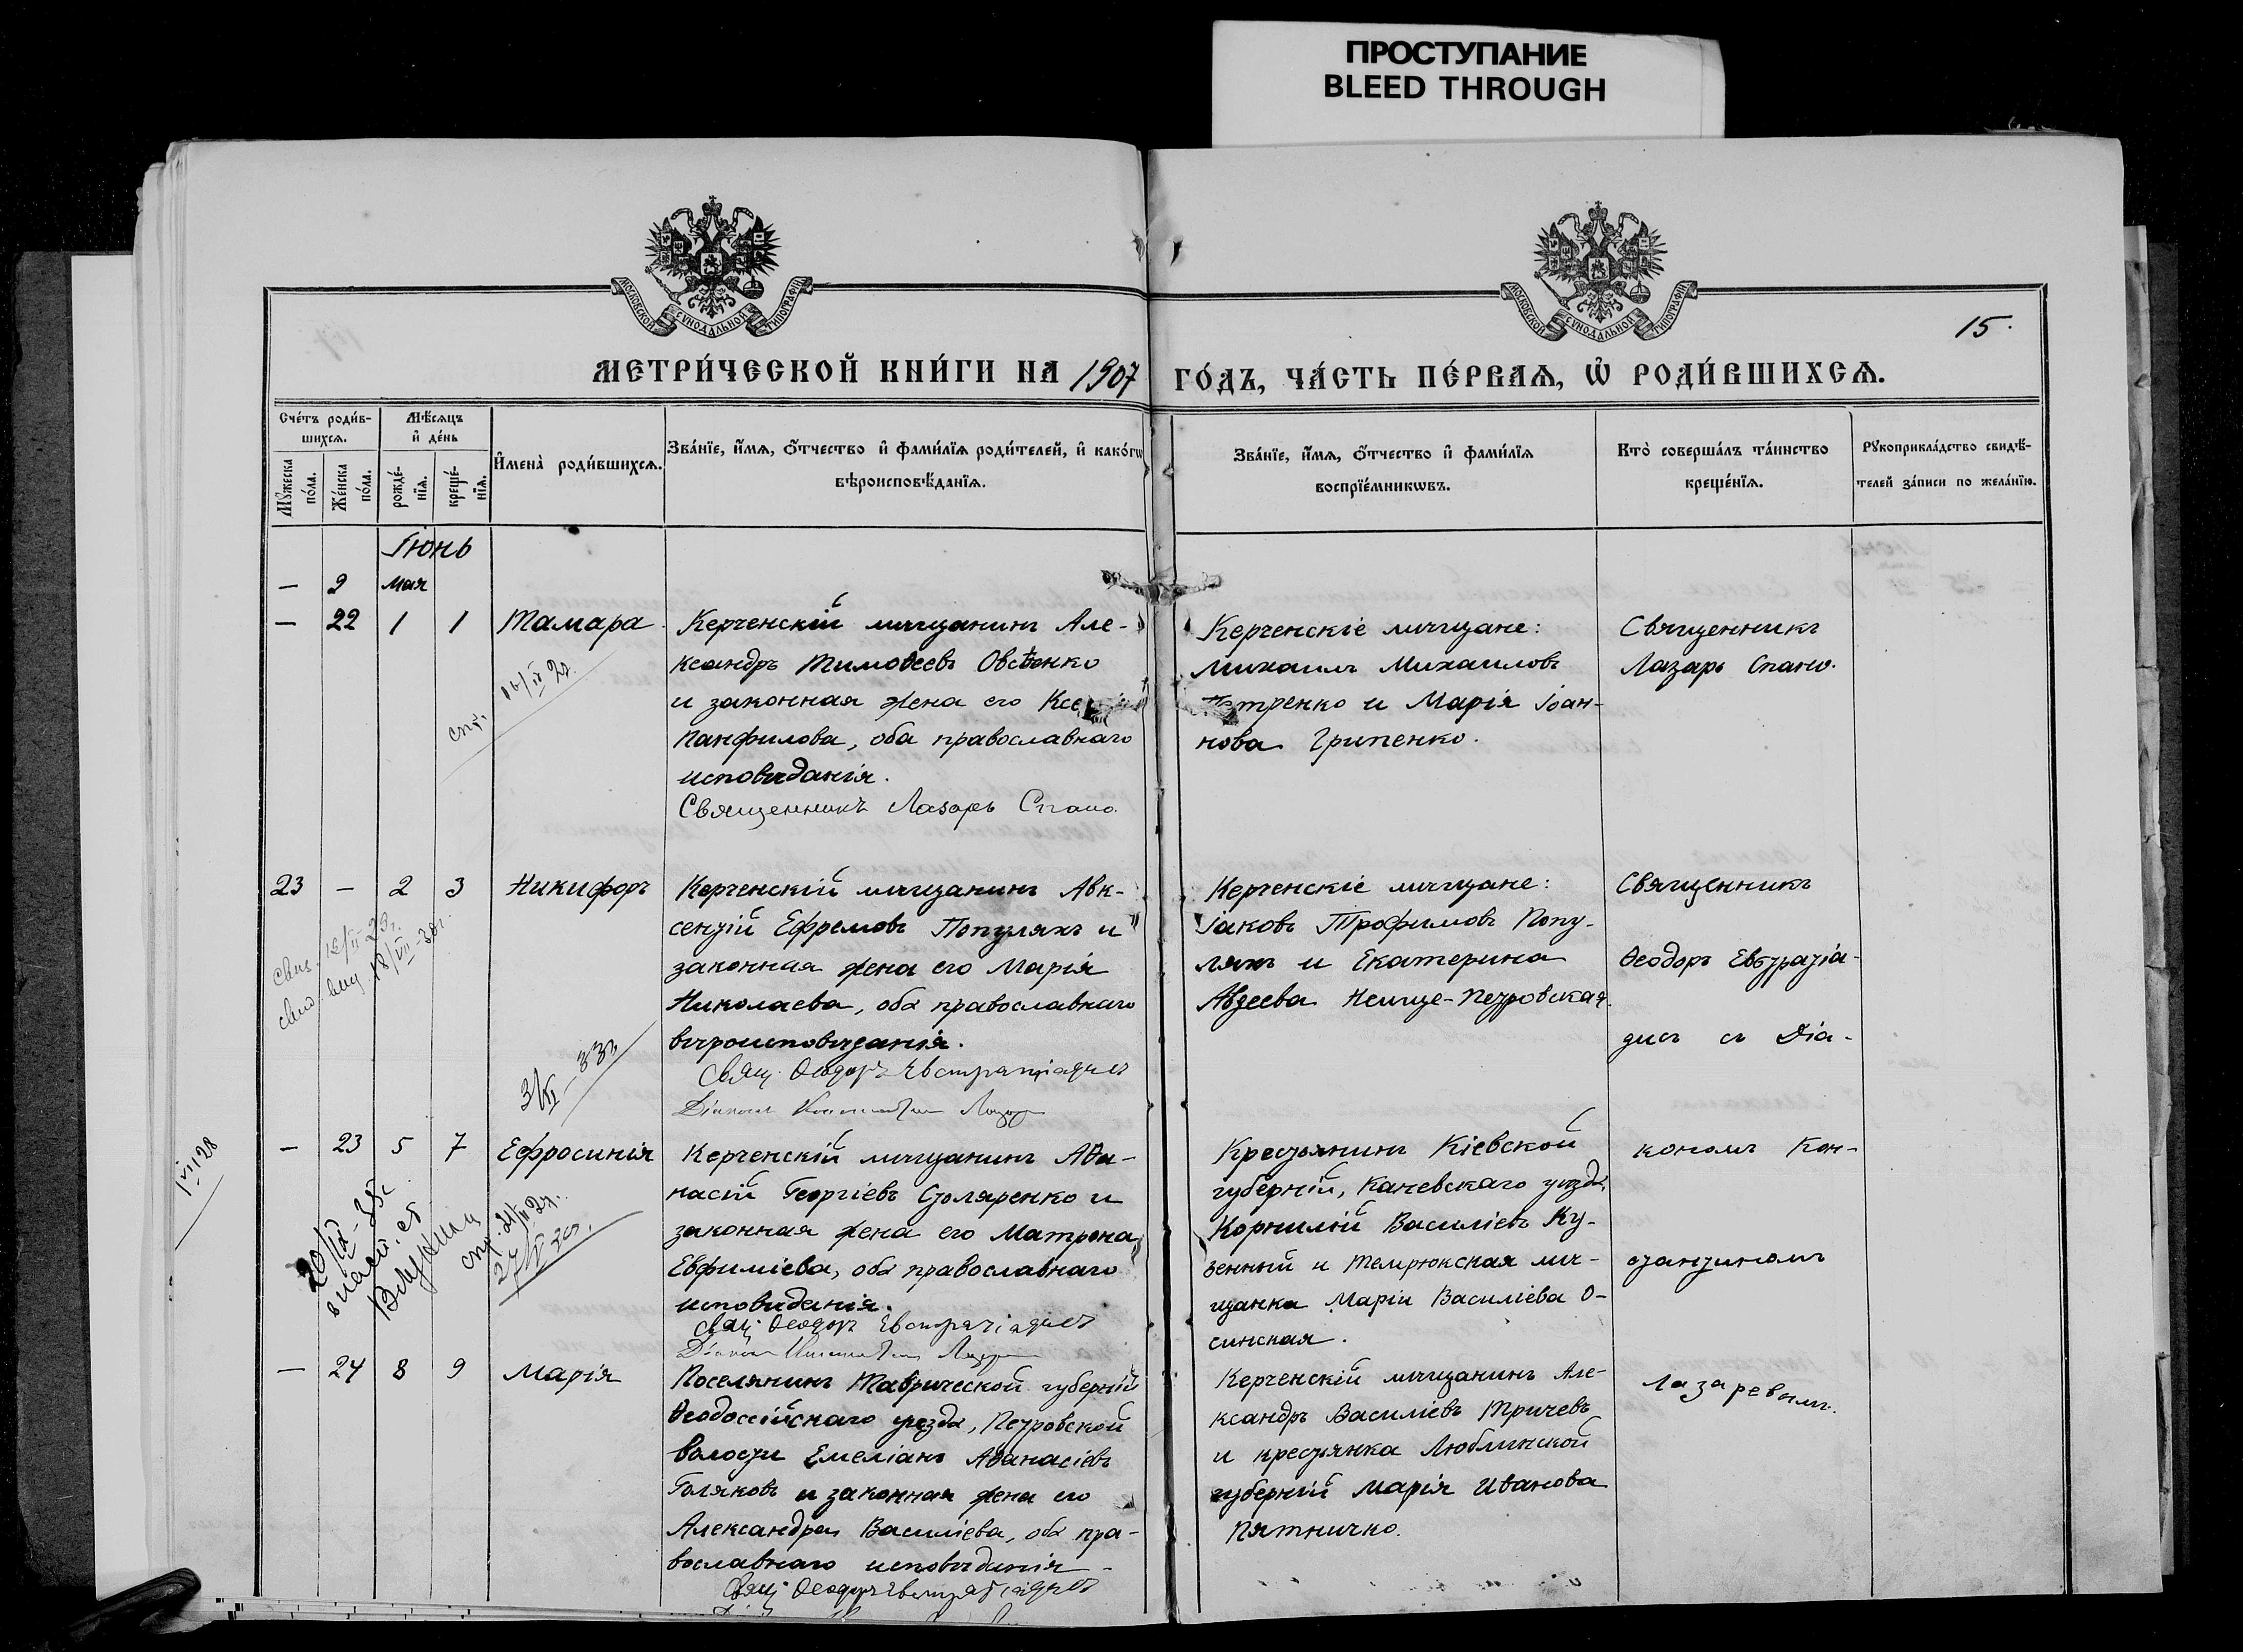 ПРОСТУПАНИЕ
BLEED THROUGH
МОСКОВСКОЙ СѴНОДАЛЬНОЙ ТИПОГРАФІИ
МОСКОВСКОЙ СѴНОДАЛЬНОЙ ТИПОГРАФІИ
15.
МЕТРИ́ЧЕСКОЙ КНИ́ГИ НА 1907 ГО́ДЪ, ЧА́СТЬ ПЕ́РВАѦ, Ѡ҆ РОДИ́ВШИХСѦ.
Сче́тъ роди́в-
шихсѧ.
Мѣ́сѧцъ
и҆ де́нь
Мꙋ́жеска
по́ла.
Же́нска
по́ла.
рожде́-
нїѧ.
креще́-
нїѧ.
И҆мена̀ роди́вшихсѧ.
Зва́нїе, и҆́мѧ, ѻ҆́тчество и҆ фами́лїѧ роди́телей, и҆ како́гѡ
вѣроисповѣ́данїѧ.
Зва́нїе, и҆́мѧ, ѻ҆́тчество и҆ фами́лїѧ
воспрїе́мникѡвъ.
Кто̀ соверша́лъ та́инство
креще́нїѧ.
Рꙋкоприкла́дство свидѣ́-
телей за́писи по жела́нїю.
Іюнь
— 2 мая
— 22 1 1 Тамара
Керченскій мѣщанинъ Але-
ксандръ Тимоѳеевъ Овсѣенко
и законная жена его
Панфилова, оба православнаго
исповѣданія.
Священникъ Лазарь Спано.
Керченскіе мѣщане:
Михаилъ Михаиловъ
и Марія Іоан-
нова Грипенко.
Священникъ
Лазарь Спано.
23 — 2 3 Никифоръ
Керченскій мѣщанинъ Авк-
сентій Ефремовъ Популякъ и
законная жена его Марія
Николаева, оба православнаго
вѣроисповѣданія.
Свящ. Ѳеодоръ Евстратіадисъ
Керченскіе мѣщане:
Іаковъ Трофимовъ Попу-
лякъ и Екатерина
Авдеева Немце-Петровская.
Священникъ
Ѳеодоръ Евстратіа-
дисъ съ Діа-
3/XI - 33г.
— 23 5 7 Ефросинія
Керченскій мѣщанинъ Аѳа-
насій Георгіевъ Столяренко и
законная жена его Матрона
Евфиміева, оба православнаго
исповѣданія.
Свящ. Ѳеодоръ Евстратіадисъ
Крестьянинъ Кіевской
губерніи, Каневскаго уѣзда,
Корнилій Василіевъ Ку-
зенный и Темрюкская мѣ-
щанка Марія Василіева О-
синская.
кономъ Кон-
стантиномъ
— 24 8 9 Марія
Поселянинъ Таврической губерніи
Ѳеодосійскаго уѣзда, Петровской
волости Емеліанъ Аѳанасіевъ
Голяковъ и законная жена его
Александра Василіева, оба пра-
вославнаго исповѣданія
Свящ. Ѳеодоръ Евстратіадисъ
Керченскій мѣщанинъ Але-
ксандръ Василіевъ Тричевъ
и крестьянка Люблинской
губерніи Марія Иванова
Пятничко.
Лазаревымъ.